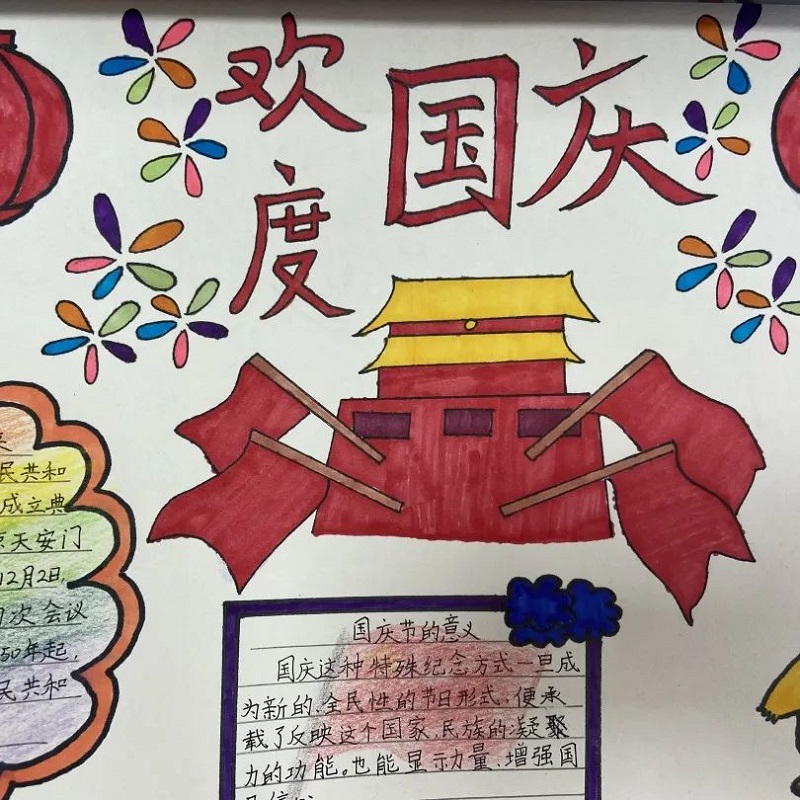 欢度
国庆
民共和
成立典
京天安门
12月2日,
次会议
50年起,
民共和
国庆节的意义
国庆这种特殊纪念方式一旦成
为新的、全民性的节日形式,便承
载了反映这个国家、民族的凝聚
力的功能。也能显示力量、增强国